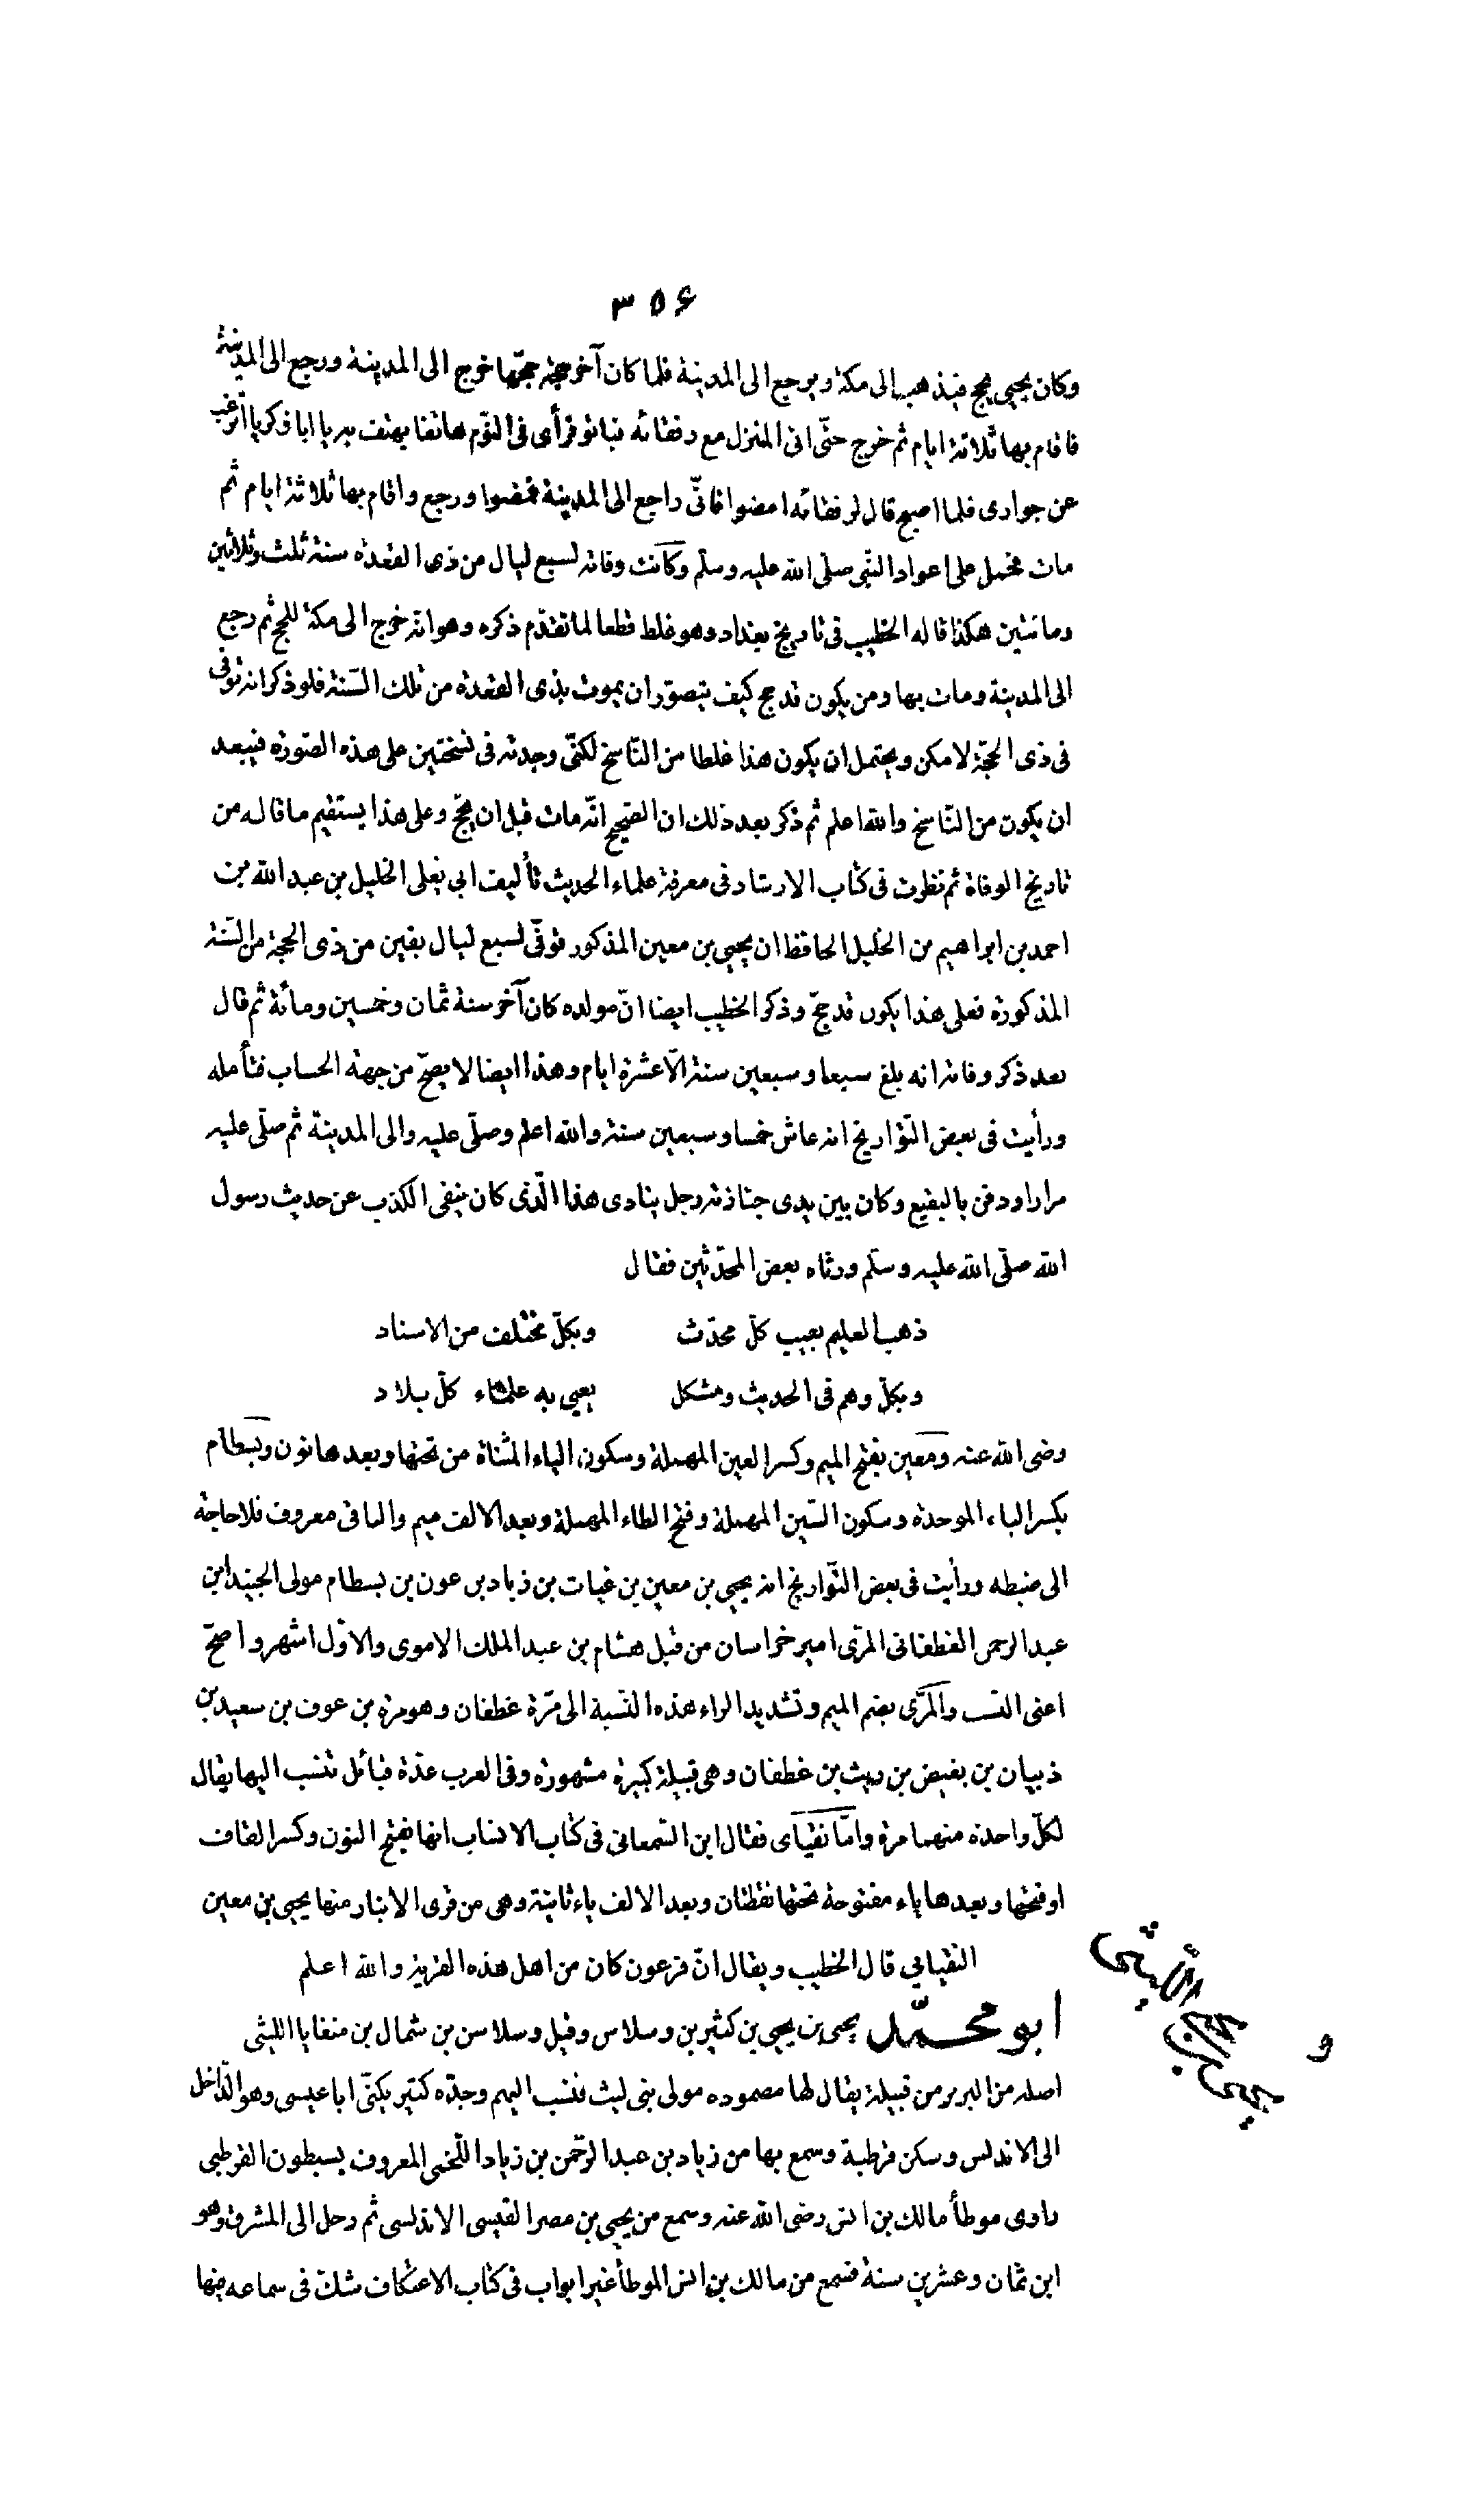 ٣٥۶
وكان يحيى يحج فيذهب الى مكة ويرجع الى المدينة فلما كان آخر حجة حجّها خرج الى المدينة ورجع الى المدينة
فاقام بها ثلاثة ايام ثم خرج حتّى اتى المنزل مع رفقائه فباتو فرأى فى النّوم هاتفا يهتف به يا ابا زكريا أترغب
عن جوارى فلما اصبح قال لرفقائه امضوا فانّى راجع الى المدينة فمضوا ورجع واقام بها ثلاثة ايام ثم
مات فحمل على اعواد النّبى صلّى الله عليه وسلّم وكانت وفاته لسبع ليال من ذى القعدة سنة ثلث وثلاثين
ومائتين هكذا قاله الخطيب فى تاريخ بغداد وهو غلط قطعا لما تقدّم ذكره وهو انّه خرج الى مكة للحج ثم رجع
الى المدينة ومات بها ومن يكون قد حج كيف يتصوّر ان يموت بذى القعدة من تلك السّنة فلو ذكر انه توفى
فى ذى الحجّة لامكن ويحتمل ان يكون هذا غلطا من النّاسخ لكنّى وجدته فى نسختين على هذه الصّورة فيبعد
ان يكون من النّاسخ والله اعلم ثم ذكر بعد ذلك ان الصّحيح انّه مات قبل ان يحجّ وعلى هذا يستقيم ما قاله من
تاريخ الوفاة ثم نظرت فى كتاب الارشاد فى معرفة علماء الحديث تأليف ابى يعلى الخليل بن عبد الله بن
احمد بن ابراهيم من الخليل الحافظ ان يحيى بن معين المذكور توفّى لسبع ليال بقين من ذى الحجة من السّنة
المذكورة فعلى هذا يكون قد حجّ وذكر الخطيب ايضا انّ مولده كان آخر سنة ثمان وخمسين ومائة ثم قال
بعد ذكر وفاته انه بلغ سبعا وسبعين سنة الّا عشرة ايام وهذا ايضا لا يصحّ من جهة الحساب فتأمله
ورأيت فى بعض التّواريخ انه عاش خمسا وسبعين سنة والله اعلم وصلّى عليه والى المدينة ثم صلّى عليه
مرارا ودفن بالبقيع وكان بين يدى جنازته رجل ينادى هذا الّذى كان ينفى الكذب عن حديث رسول
الله صلّى الله عليه وسلّم ورثاه بعض المحدّثين فقال
ذهب العليم بعيب كلّ محدّث وبكلّ مختلف من الاسناد
وبكلّ وهم فى الحديث ومشكل يعيى به علماء كلّ بلاد
رضى الله عنه ومعين بفتح الميم وكسر العين المهملة وسكون الياء المثناة من تحتها وبعدها نون وبسطام
بكسر الباء الموحدة وسكون السّين المهملة وفتح الطاء المهملة وبعد الالف ميم والباقى معروف فلا حاجة
الى ضبطه ورأيت فى بعض التّواريخ انه يحيى بن معين بن غياث بن زياد بن عون بن بسطام مولى الجنيد ابن
عبد الرحمن الغطفانى المرّى امير خراسان من قبل هشام بن عبد الملك الاموى والاوّل اشهر واصحّ
اعنى النّسب والمرّى بضم الميم وتشديد الراء هذه النّسبة الى مرّة غطفان وهو مرة بن عوف بن سعيد بن
ذبيان بن بغيض بن ريث بن غطفان وهى قبيلة كبيرة مشهورة وفى العرب عدّة قبائل تنسب اليها يقال
لكلّ واحدة منهما مرة وامّا نقياى فقال ابن السّمعانى فى كتاب الانساب انها بفتح النون وكسر القاف
او فتحها وبعدها ياء مفتوحة تحتها نقطتان وبعد الالف ياء ثانية وهى من قرى الانبار منها يحيى بن معين
النقيايى قال الخطيب ويقال انّ فرعون كان من اهل هذه القرية والله اعلم
ابو محمّد يحيى بن يحيى بن كثير بن وسلاس وقيل وسلاسن بن شمال بن منغايا الليثى
اصله من البربر من قبيلة يقال لها مصموده مولى بنى ليث فنسب اليهم وجدّه كثير يكنّى ابا عيسى وهو الدّاخل
الى الاندلس وسكن قرطبة وسمع بها من زياد بن عبد الرّحمن بن زياد اللّخمى المعروف بسبطون القرطبى
راوى موطأ مالك بن انس رضى الله عنه وسمع من يحيى بن مضر القيسى الاندلسى ثم رحل الى المشرق وهو
ابن ثمان وعشرين سنة فسمع من مالك بن انس الموطأ غير ابواب فى كتاب الاعتكاف شكّ فى سماعه فيها
يحيى بن يحيى الليثى
و